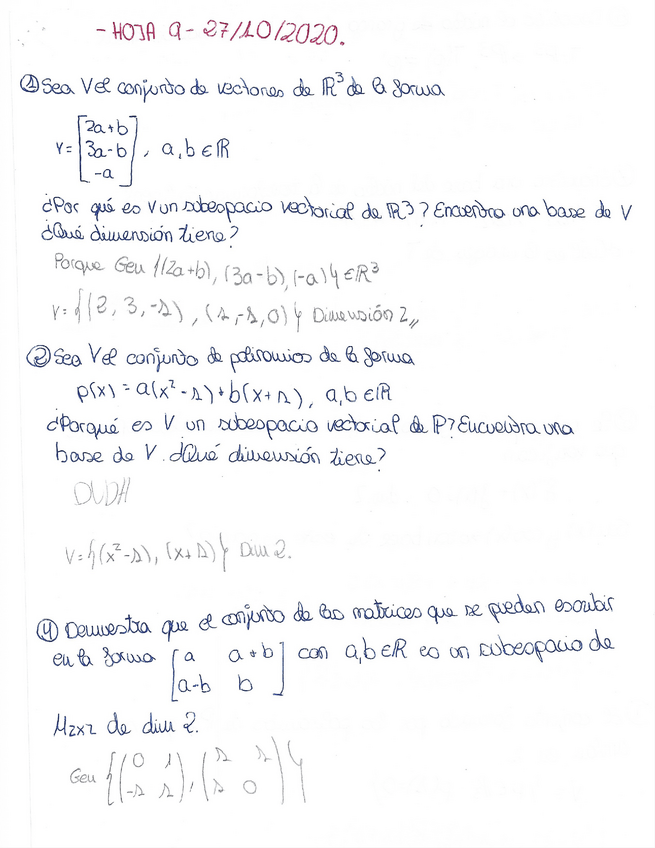 - HOJA 9 - 27/10/2020.
① Sea V el conjunto de vectores de ℝ³ de la forma
v = [2a+b
3a-b
-a], a,b ∈ ℝ
¿Por qué es V un subespacio vectorial de ℝ³? Encuentra una base de V
¿Qué dimensión tiene?
Porque Gen {(2a+b), (3a-b), (-a)} ∈ ℝ³
V = {(2, 3, -1), (1, -1, 0)} Dimensión 2,,
② Sea V el conjunto de polinomios de la forma
p(x) = a(x²-1)+b(x+1), a,b ∈ ℝ
¿Porqué es V un subespacio vectorial de P? Encuentra una
base de V. ¿Qué dimensión tiene?
V = {(x²-1), (x+1)} Dim 2.
④ Demuestra que el conjunto de las matrices que se pueden escribir
en la forma [a a+b
a-b b] con a,b ∈ ℝ es un subespacio de
M2x2 de dim 2.
Gen {(0 1
-1 1), (1 1
1 0)}